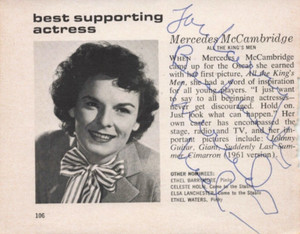 best supporting
actress
Mercedes McCambridge
ALL THE KING'S MEN
WHEN Mercedes McCambridge
came up for the Oscar she earned
with her first picture, All the King's
Men, she had a word of inspiration
for all young players. "I just want
to say to all beginning actresses—
never get discouraged. Hold on.
Just look what can happen." Her
own career has encompassed the
stage, radio and TV, and her im-
portant pictures include: Johnny
Guitar, Giant, Suddenly Last Sum-
mer, Cimarron (1961 version).
OTHER NOMINEES:
ETHEL BARRYMORE, Pinky
CELESTE HOLM, Come to the Stable
ELSA LANCHESTER, Come to the Stable
ETHEL WATERS, Pinky
106